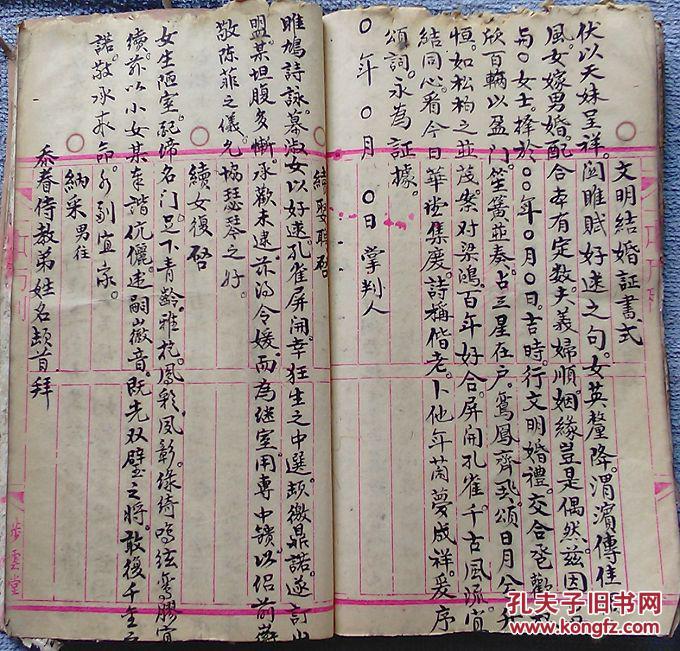 文明結婚証書式
伏以天妹呈祥。関雎賦好逑之句。女英釐降。渭濱傳佳
風。女嫁男婚。配合本有定数。夫義婦順。姻緣豈是偶然。茲因
与〇女士。擇於〇〇年〇月〇日。吉時行文明婚禮。交合卺歡
欣百輛以盈门。笙簧並奏。占三星在户。鸞鳳齊飛。頌日月分
恒。如松柏之並茂。案对梁鴻。百年好合。屏開孔雀。千古風流。宵
結同心。看今日華堂集慶。詩稱偕老。卜他年蘭夢成祥。爰序
頌詞。永為証據。
〇年〇月〇日掌判人
續娶聘啓
雎鳩詩詠。慕淑女以好逑。孔雀屏開。幸狂生之中選。頻徼鼎諾。遂訂
盟。某坦腹多慚。承歡未逮。茲得令媛。而為继室。用專中饋。以侶前
敬陈菲之儀。允協瑟琴之好。
續女復啓
女生陋室。配谛名门。足下青齡。雅抗。鳳彩風彰。綠綺鸣弦。鸞膠宜
續。茲以小女某。奉谐伉儷。逮嗣徽音。既先双璧之將。敢復千金
諾。敬承嘉命。永利宜家。
納采男往
忝眷侍教弟姓名頓首拜
步雲堂
孔夫子旧书网
www.kongfz.com